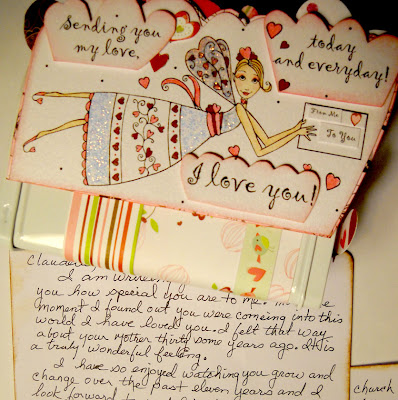 Sending you
my love,
today
and everyday!
From Me
To You
I love you!
I am
you how special you are to me.
moment I found out you were comeing into this
world I have loved you. I felt that way
about your mother thirty some years ago. It is
a truly wonderful feeling.
I have so enjoyed watching you grow and
change over the past eleven years and I
look forward to
church